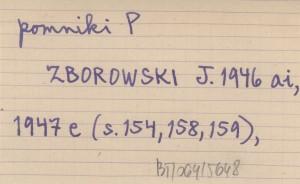 pomniki P
ZBOROWSKI J. 1946 ai,
1947 e (s. 154, 158, 159),